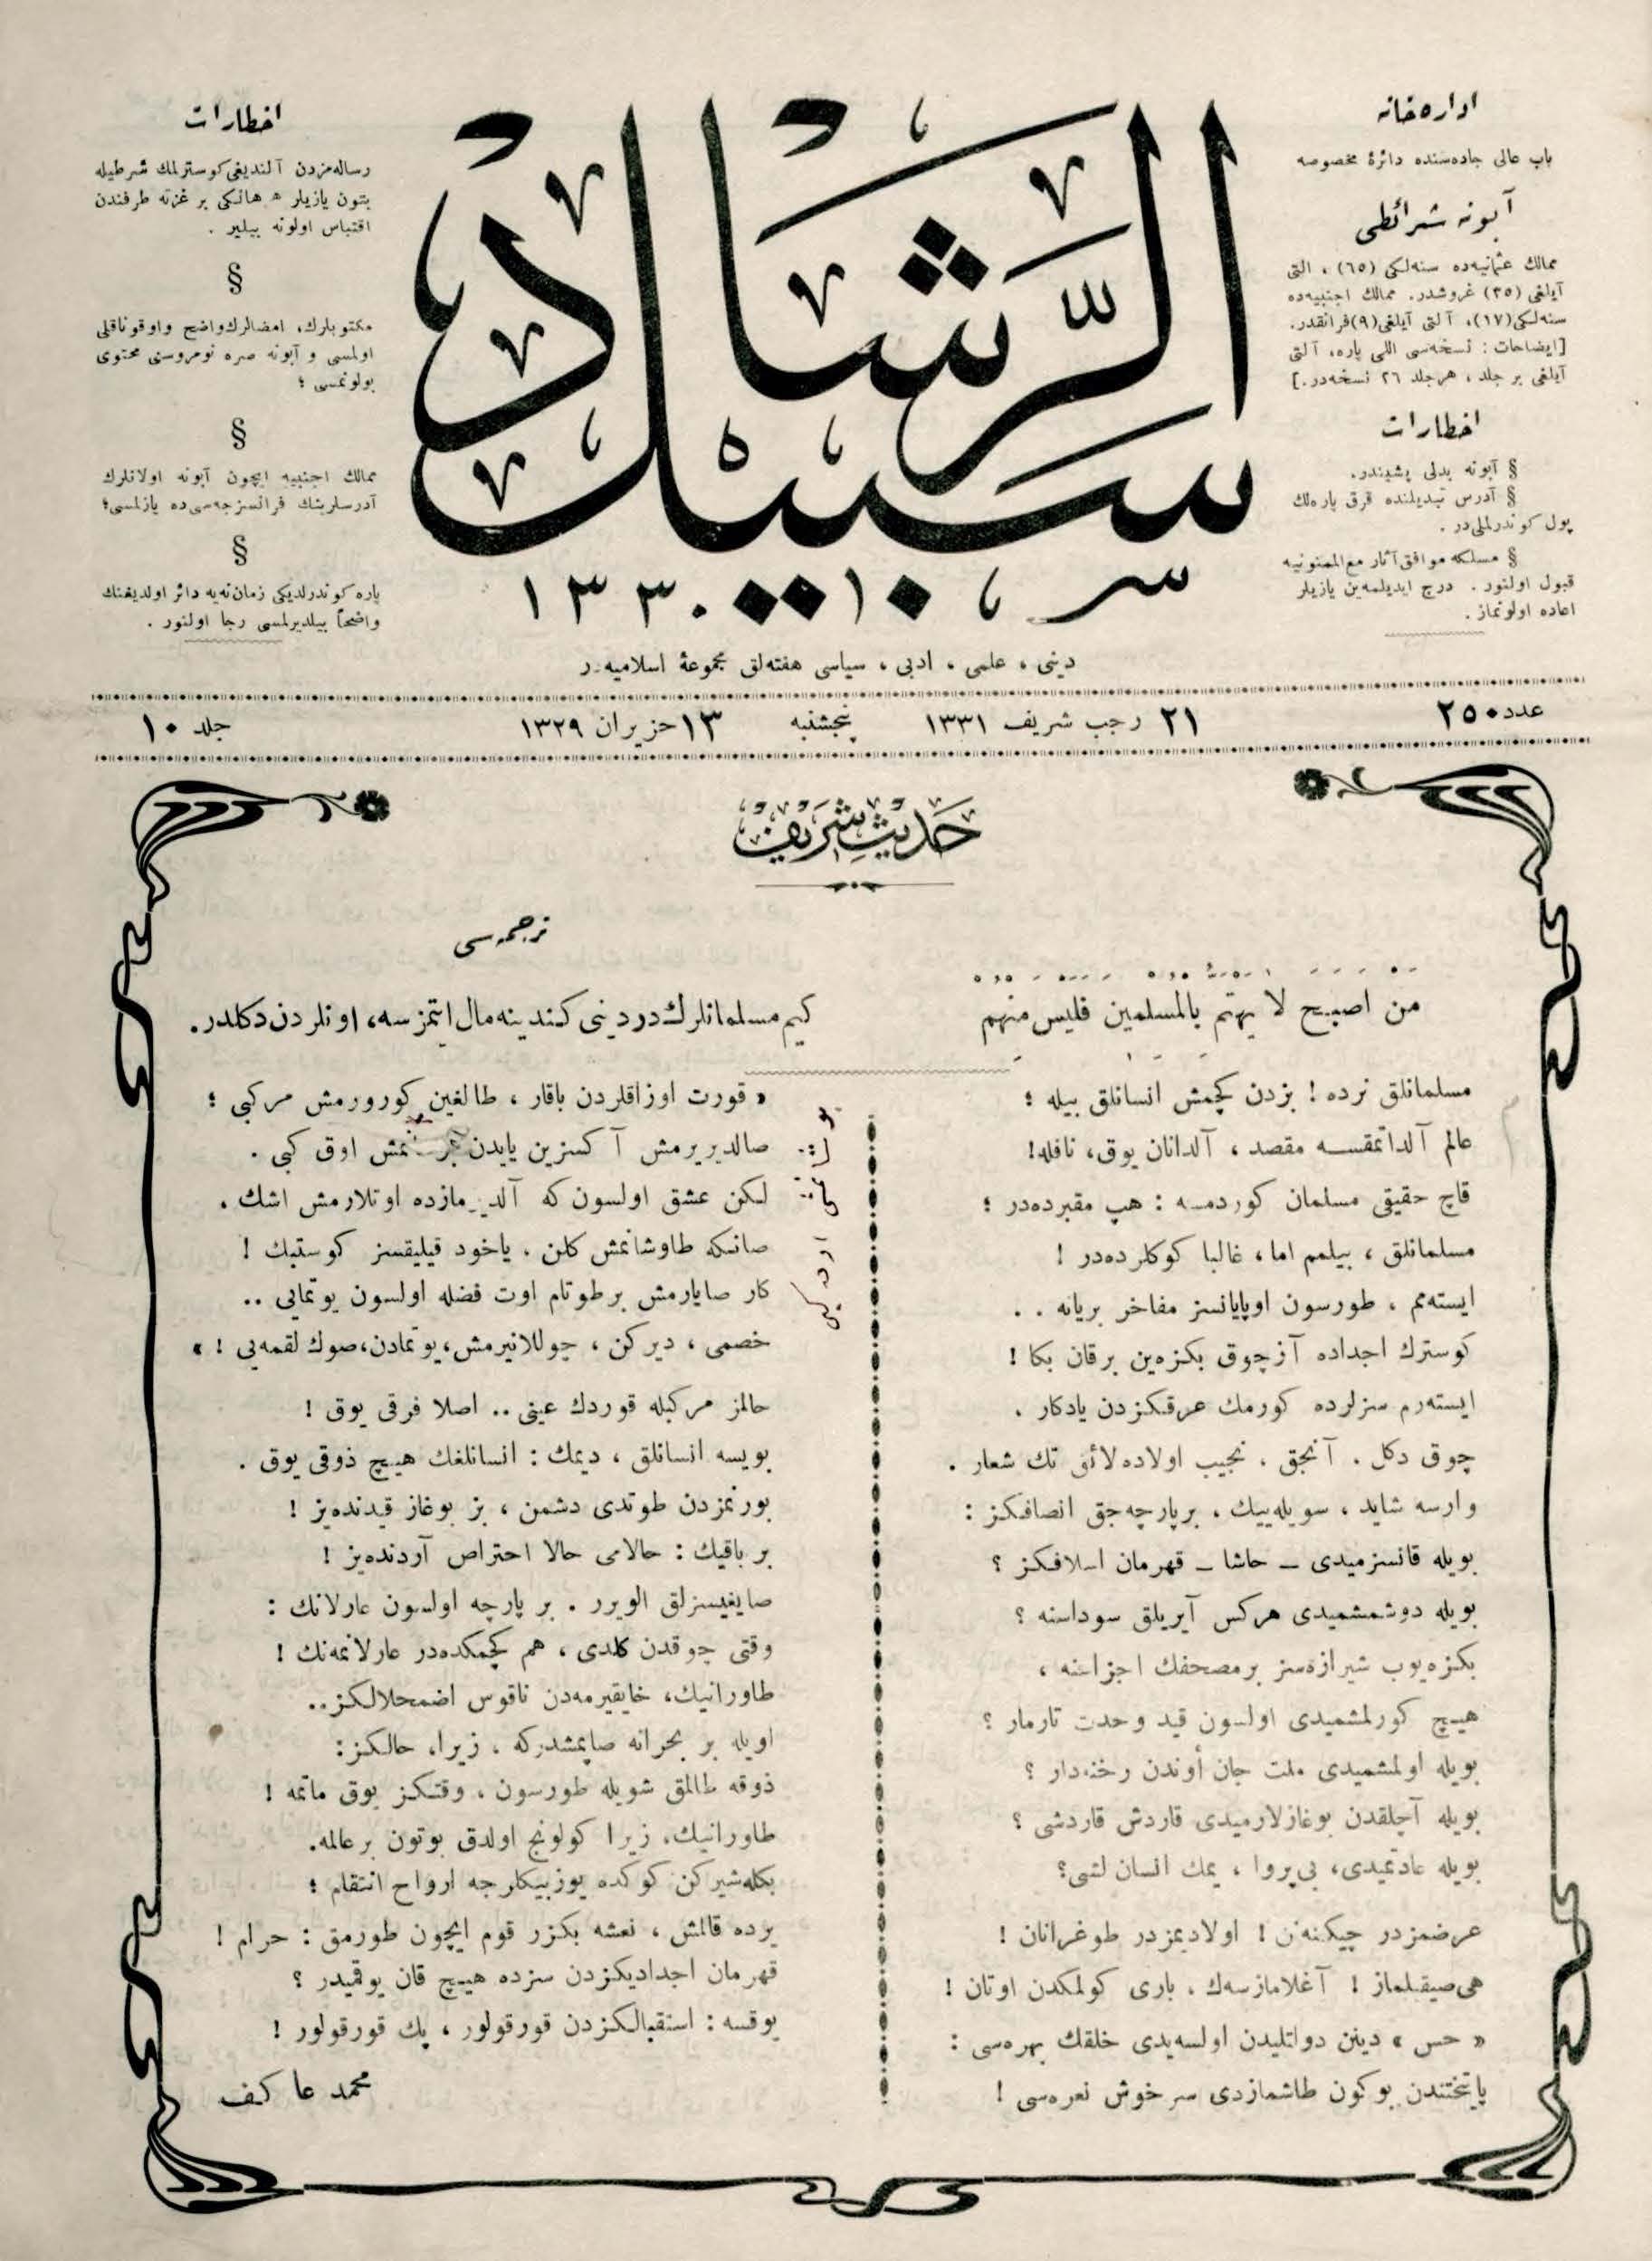 اداره خانه
باب عالی جاده‌سنده دائرۀ مخصوصه
آبونه شرائطی
ممالك عثمانیه‌ده سنه‌لكی (٦٥) ، التی
آیلغی (٣٥) غروشدر. ممالك اجنبیه‌ده
سنه‌لكی (١٧)، آلتی آیلغی (٩) فرانقدر.
[ایضاحات : نسخه‌سی اللی پاره، آلتی
آیلغی بر جلد ، هر جلد ٢٦ نسخه‌در.]
اخطارات
§ آبونه بدلی پشیندر.
§ آدرس تبدیلنده قرق پاره‌لك
پول كوندرلملی‌در .
§ مسلكه موافق آثار مع الممنونیه
قبول اولنور . درج ایدیلمه‌ین یازیلر
اعاده اولونماز .
سبيل الرشاد
١٣٣٠
اخطارات
رساله‌مزدن آلندیغی كوسترلمك شرطیله
بتون یازیلر هر هانكی بر غزته طرفندن
اقتباس اولونه بیلیر .
§
مكتوبلرك، امضالرك واضح و اوقوناقلی
اولمسی و آبونه صره نومروسنی محتوی
بولونمسی ؛
§
ممالك اجنبیه ایچون آبونه اولانلرك
آدرسلرینك فرانسزجه‌سی‌ده یازلمسی؛
§
پاره كوندرلدیكی زمان نه‌یه دائر اولدیغنك
واضحاً بیلدیرلمسی رجا اولنور .
دینی ، علمی ، ادبی ، سیاسی هفته‌لق مجموعۀ اسلامیه‌در
عدد ٢٥٠
٢١ رجب شریف ١٣٣١ پنجشنبه ١٣ حزیران ١٣٢٩
جلد ١٠
حديث شريف
من اصبح لا يهتم بالمسلمين فليس منهم
ترجمه‌سی
كیم مسلمانلرك دردینی كندینه مال ایتمزسه، اونلردن دكلدر.
مسلمانلق نرده ! بزدن كچمش انسانلق بیله ؛
عالم آلداتمقسه مقصد ، آلدانان یوق، نافله!
قاچ حقیقی مسلمان كوردمسه : هپ مقبرده‌در ؛
مسلمانلق ، بیلمم اما، غالبا كوكلرده‌در !
ایسته‌مم ، طورسون اوپایانسز مفاخر بریانه . .
كوسترك اجداده آز چوق بكزه‌ین بر قان بكا !
ایسته‌رم سزلرده كورمك عرقكزدن یادكار .
چوق دكل . آنجق ، نجیب اولاده لائق تك شعار .
وارسه شاید ، سویله‌ییك ، بر پارچه‌جق انصافكز :
بویله قانسزمیدی ــ حاشا ــ قهرمان اسلافكز ؟
بویله دوشمشمیدی هركس آیریلق سوداسنه ؟
بكزه‌یوب شیرازه‌سز بر مصحفك اجزاسنه ،
هیچ كورلمشمیدی اولسون قید وحدت تارمار ؟
بویله اولمشمیدی ملت جان أوندن رخنه‌دار ؟
بویله آچلقدن بوغازلارمیدی قاردش قاردشی ؟
بویله عادتمیدی، بی‌پروا ، یمك انسان لشی؟
عرضمزدر چیكنه‌نن ! اولادیمزدر طوغرانان !
هی صیقلماز ! آغلامازسه‌ك ، باری كولمكدن اوتان !
« حس » دینن دولتلیدن اولسه‌یدی خلقك بهره‌سی :
پایتختندن بوكون طاشمازدی سرخوش نعره‌سی !
« قورت اوزاقلردن باقار ، طالغین كورورمش مركبی ؛
صالدیریرمش آكسزین یایدن اوق كبی .
لكن عشق اولسون كه آلدیرمازده اوتلارمش اشك ،
صانكه طاوشانمش كلن ، یاخود قیلیقسز كوستبك !
كار صایارمش بر طوتام اوت فضله اولسون یوتمایی ..
خصمی ، دیركن ، چوللانیرمش، یوتمادن، صوك لقمه‌یی ! »
حالمز مركبله قوردك عینی .. اصلا فرقی یوق !
بویسه انسانلق ، دیمك : انسانلغك هیچ ذوقی یوق .
بورنمزدن طوتدی دشمن ، بز بوغاز قیدنده‌یز !
بر باقیك : حالامی حالا احتراص آردنده‌یز !
صایغیسزلق الویرر . بر پارچه اولسون عارلانك :
وقتی چوقدن كلدی ، هم كچمكده‌در عارلانمه‌نك !
طاورانیك، خایقیرمه‌دن ناقوس اضمحلالكز..
اویله بر بحرانه صاپمشدركه ، زیرا، حالكز:
ذوقه طالمق شویله طورسون ، وقتكز یوق ماتمه !
طاورانیك، زیرا كولونج اولدق بوتون بر عالمه.
بكله‌شیركن كوكده یوز بیكلرجه ارواح انتقام ؛
یرده قالمش ، نعشه بكزر قوم ایچون طورمق : حرام !
قهرمان اجدادیكزدن سزده هیچ قان یوقمیدر ؟
یوقسه : استقبالكزدن قورقولور ، پك قورقولور !
محمد عاكف